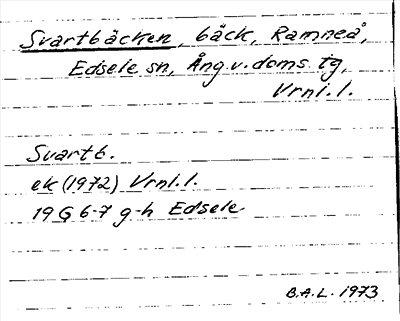 Svartbäcken, bäck, Ramneå,
Edsele sn, Ång.v.doms. tg,
Vrnl.l.
Svartb.
ek (1972) Vrnl.l.
19 G 6-7 g-h Edsele
B.A.L. 1973